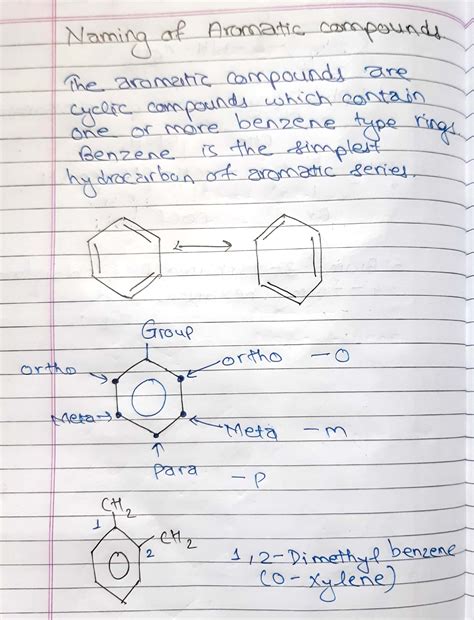 Naming of Aromatic compounds
The aromatic compounds are
cyclic compounds which contain
one or more benzene type rings.
Benzene is the simplest
hydrocarbon of aromatic series.
Group
ortho
ortho - O
Meta
Meta - m
Para - P
CH2
1
2 CH2
1,2-Dimethyl benzene
(O-xylene)